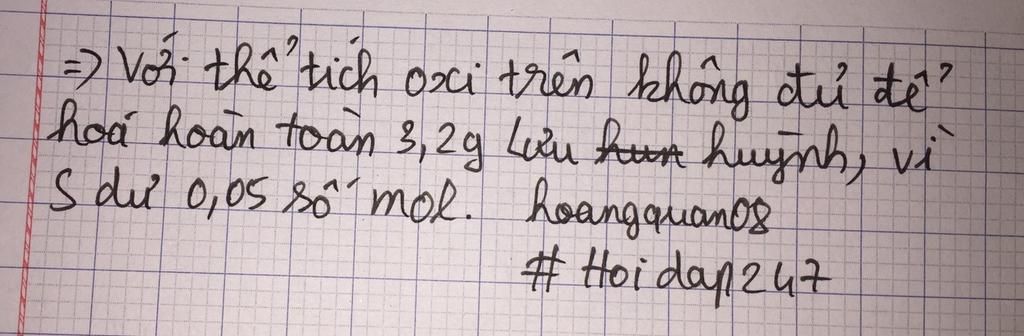 => Với thể tích oxi trên không đủ để
hoá hoàn toàn 3,2g lưu huỳnh, vì
S dư 0,05 số mol. hoangquan08
# Hoidap247